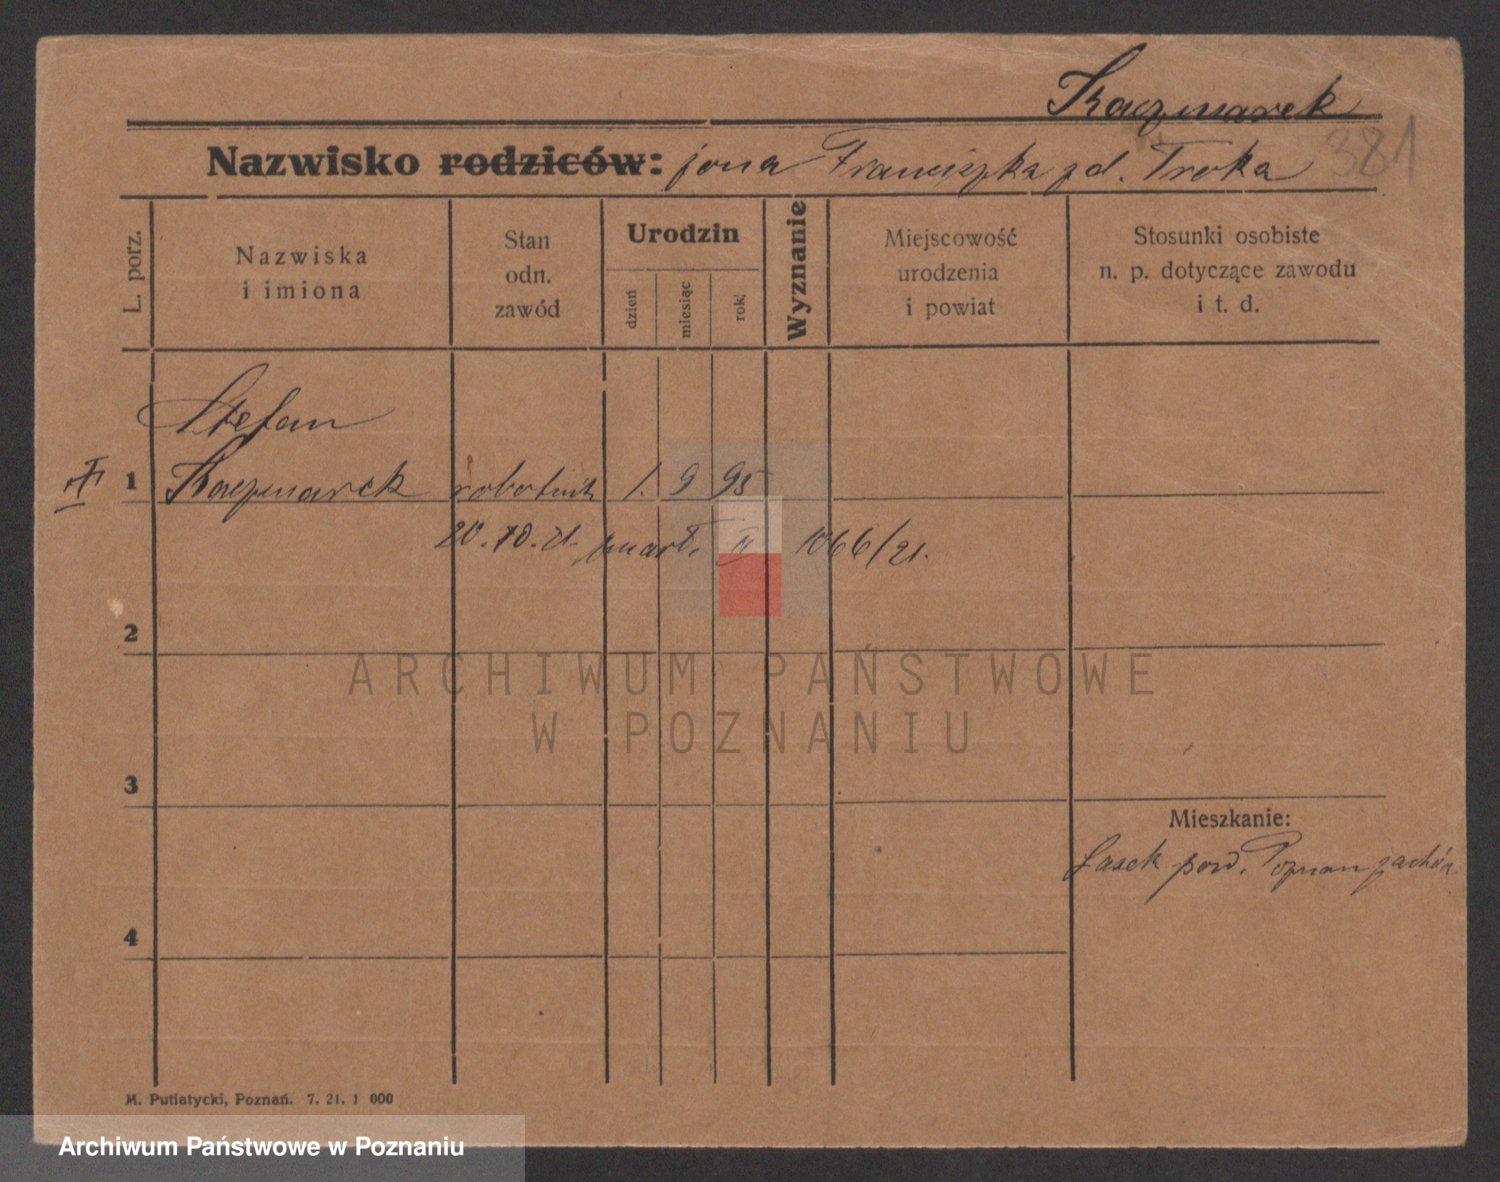 Kaczmarek
Nazwisko rodziców: żona Franciszka zd. Troka
381
L. porz.
Nazwiska
i imiona
Stan
odn.
zawód
Urodzin
dzień
miesiąc
rok
Wyznanie
Miejscowość
urodzenia
i powiat
Stosunki osobiste
n. p. dotyczące zawodu
i t. d.
Stefan
1 Kaczmarek robotnik 1. 9 95
20. 10. 21. zmarł. 1066/21.
2
3
4
Mieszkanie:
Lasek pow. Poznan zachód
ARCHIWUM PAŃSTWOWE
W POZNANIU
M. Putiatycki, Poznań. 7. 21. 1 000
Archiwum Państwowe w Poznaniu